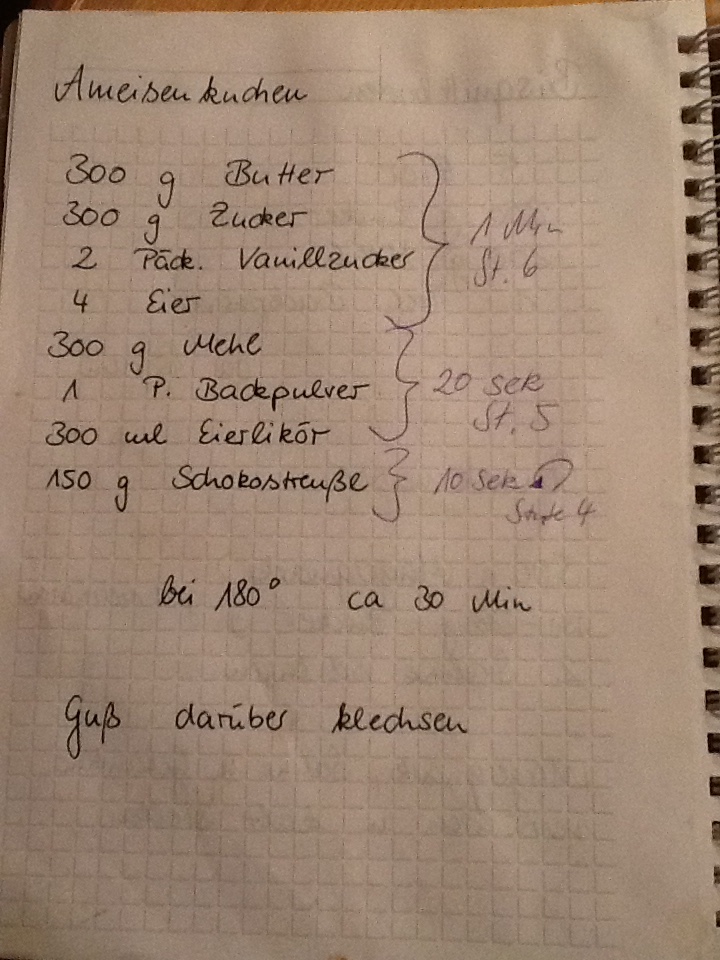 Ameisenkuchen
300 g Butter
300 g Zucker
2 Päck. Vanillzucker
4 Eier
1 Min
St. 6
300 g Mehl
1 P. Backpulver
300 ml Eierlikör
20 sek
St. 5
150 g Schokostreußel
10 sek
Stufe 4
bei 180° ca 30 Min
Guß darüber klechsen